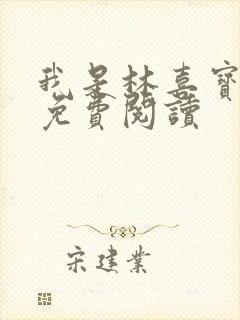 我是林喜寶
免費閱讀
宋建業